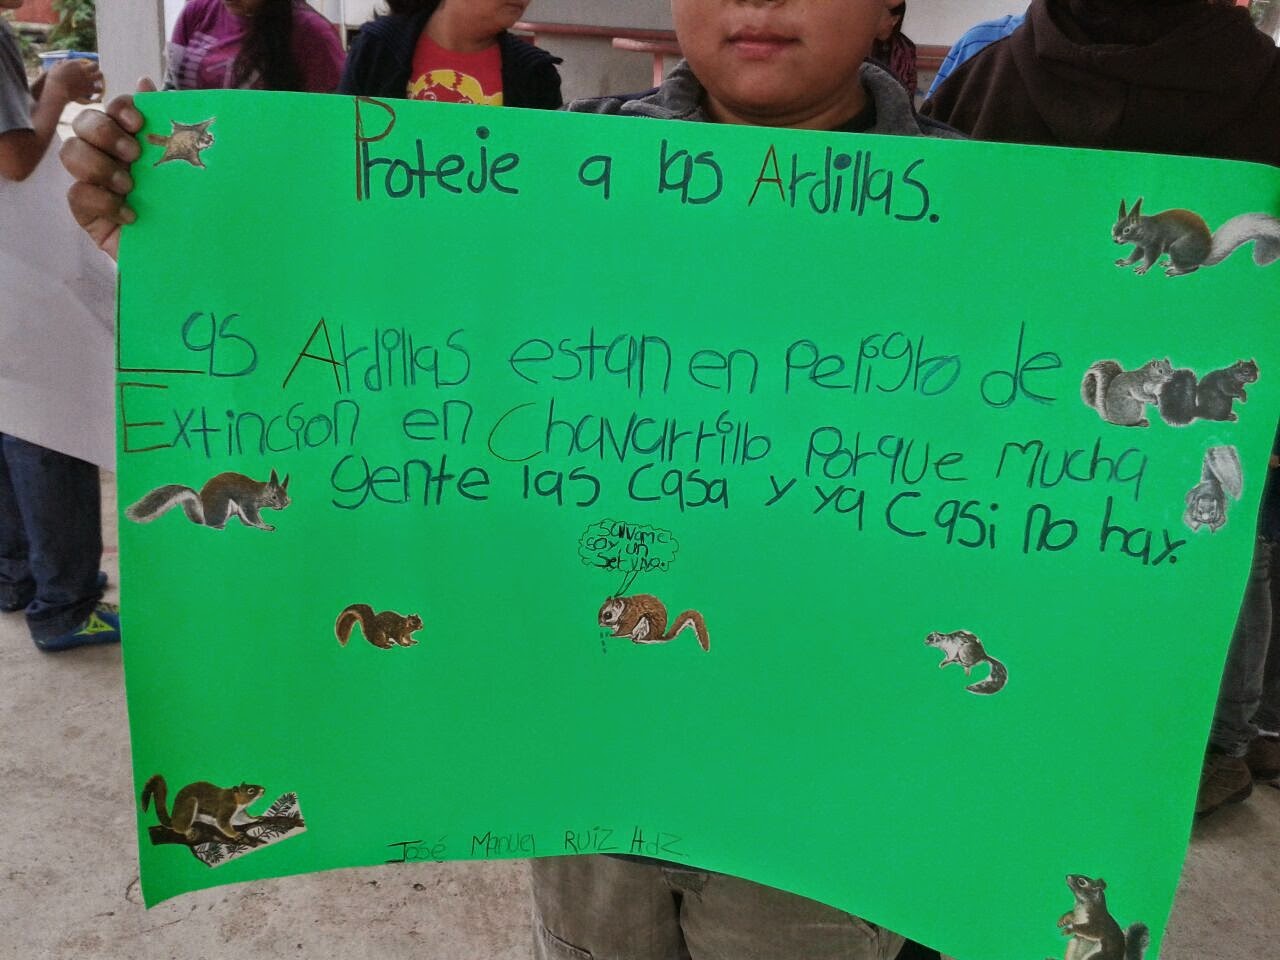 Proteje a las Ardillas.
Las Ardillas estan en peligro de
Extincion en Chavarrillo porque mucha
gente las casa y ya casi no hay.
salvame
soy un
ser vivo.
José Manuel Ruiz Hdz